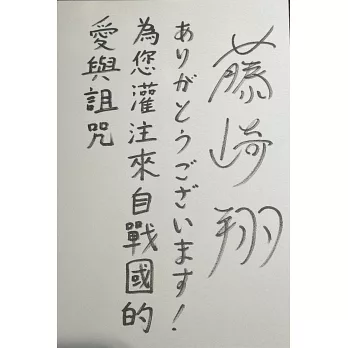 藤崎翔
ありがとうございます!
為您灌注來自戰國的
愛與詛咒